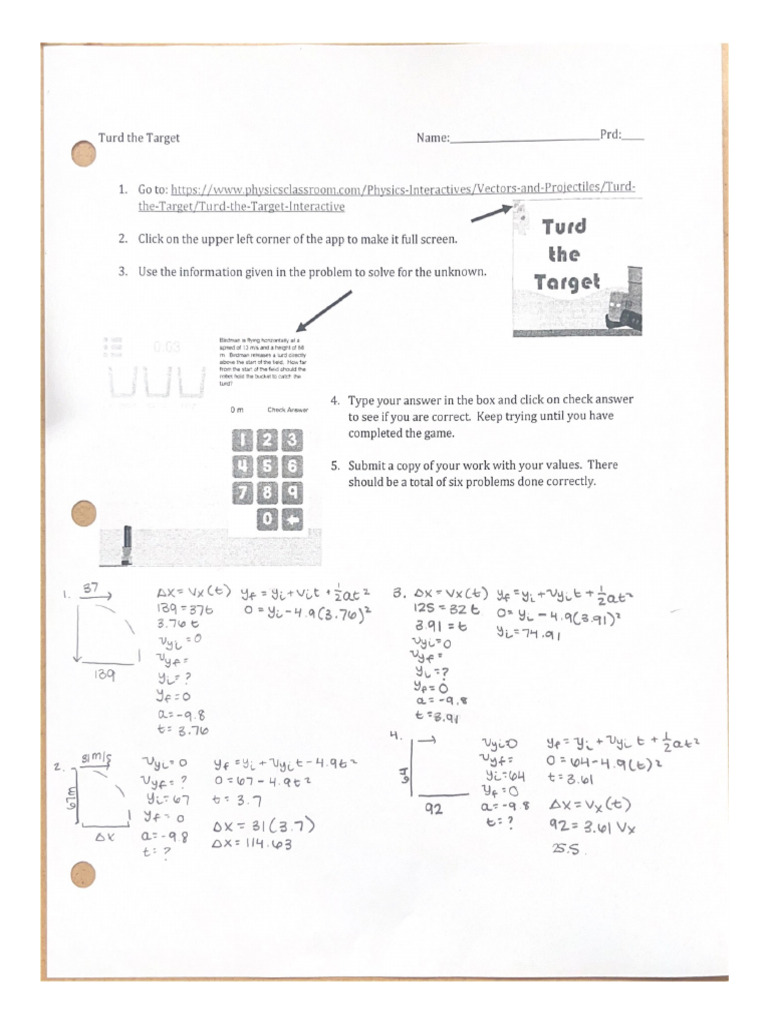 Turd the Target
Name:____________________ Prd:____
1. Go to: https://www.physicsclassroom.com/Physics-Interactives/Vectors-and-Projectiles/Turd-
the-Target/Turd-the-Target-Interactive
2. Click on the upper left corner of the app to make it full screen.
3. Use the information given in the problem to solve for the unknown.
Turd
the
Target
0.03
Birdman is flying horizontally at a
speed of 13 m/s and a height of 58
m. Birdman releases a turd directly
above the start of the field. How far
from the start of the field should the
robot hold the bucket to catch the
turd?
0 m Check Answer
1 2 3
4 5 6
7 8 9
0 ←
4. Type your answer in the box and click on check answer
to see if you are correct. Keep trying until you have
completed the game.
5. Submit a copy of your work with your values. There
should be a total of six problems done correctly.
1. 37
139
Δx = Vx(t)
139 = 37t
3.76 t
Vyi = 0
Vyf =
yi = ?
yf = 0
a = -9.8
t = 3.76
yf = yi + vit + 1/2 at²
0 = yi - 4.9(3.76)²
3. Δx = Vx(t)
125 = 32t
3.91 = t
Vyi = 0
Vyf =
yi = ?
yf = 0
a = -9.8
t = 3.91
yf = yi + Vyit + 1/2 at²
0 = yi - 4.9(3.91)²
yi = 74.91
2. 31 m/s
Δx
Vyi = 0
Vyf = ?
yi = 67
yf = 0
a = -9.8
t = ?
yf = yi + Vyit - 4.9t²
0 = 67 - 4.9t²
t = 3.7
Δx = 31(3.7)
Δx = 114.63
4.
92
Vyi = 0
Vyf =
yi = 64
yf = 0
a = -9.8
t = ?
yf = yi + Vyi t + 1/2 at²
0 = 64 - 4.9(t)²
t = 3.61
Δx = Vx(t)
92 = 3.61 Vx
25.5